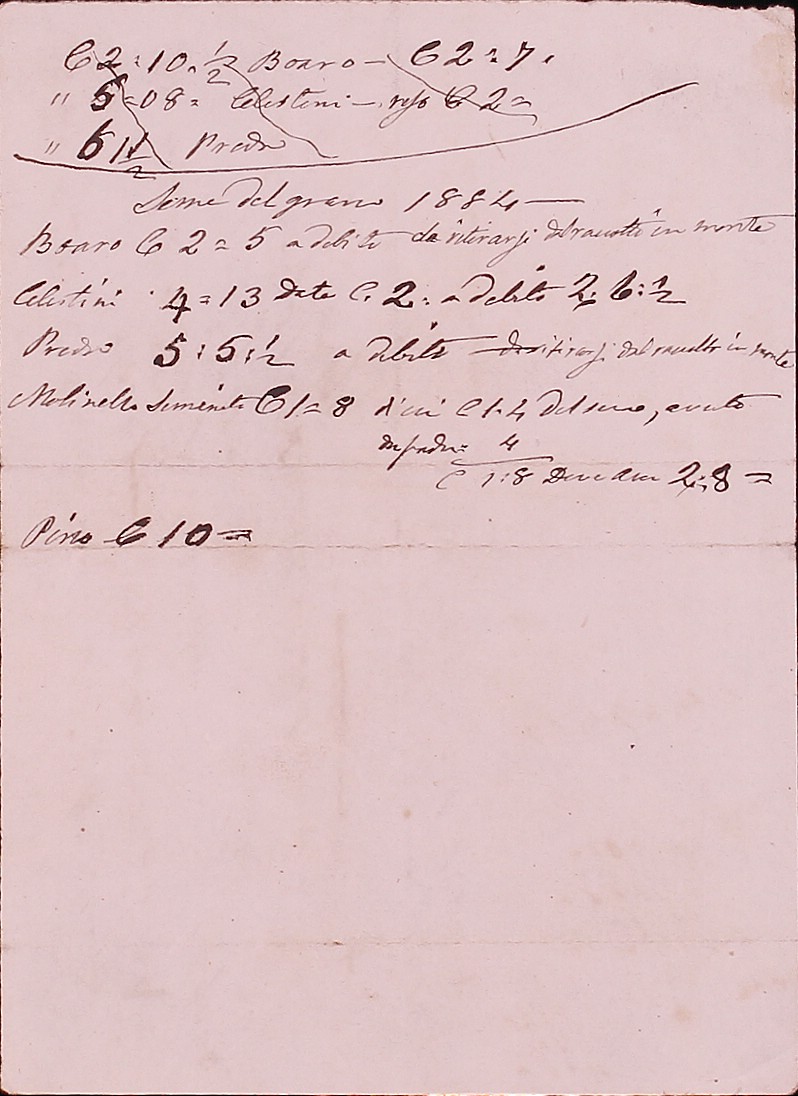 C 2 = 10. 1/2 Boaro — C 2 = 7.
" 5 = 08 = Celestini — reso C 2 =
" 6 11 1/2 Predro
Seme del grano 1884 —
Boaro C 2 = 5 a debito da ritirarsi dal racolto in monte
Celestini 4 = 13 date C. 2. a debito 2. 6: 1/2
Predro 5: 5: 1/2 a debito da ritirarsi dal racolto in monte
Molinello Seminato C 1 = 8 di cui C 1. 4 del suo, avuto
4
C 1:8 Deve dare 2:8 =
Pino C 10 =